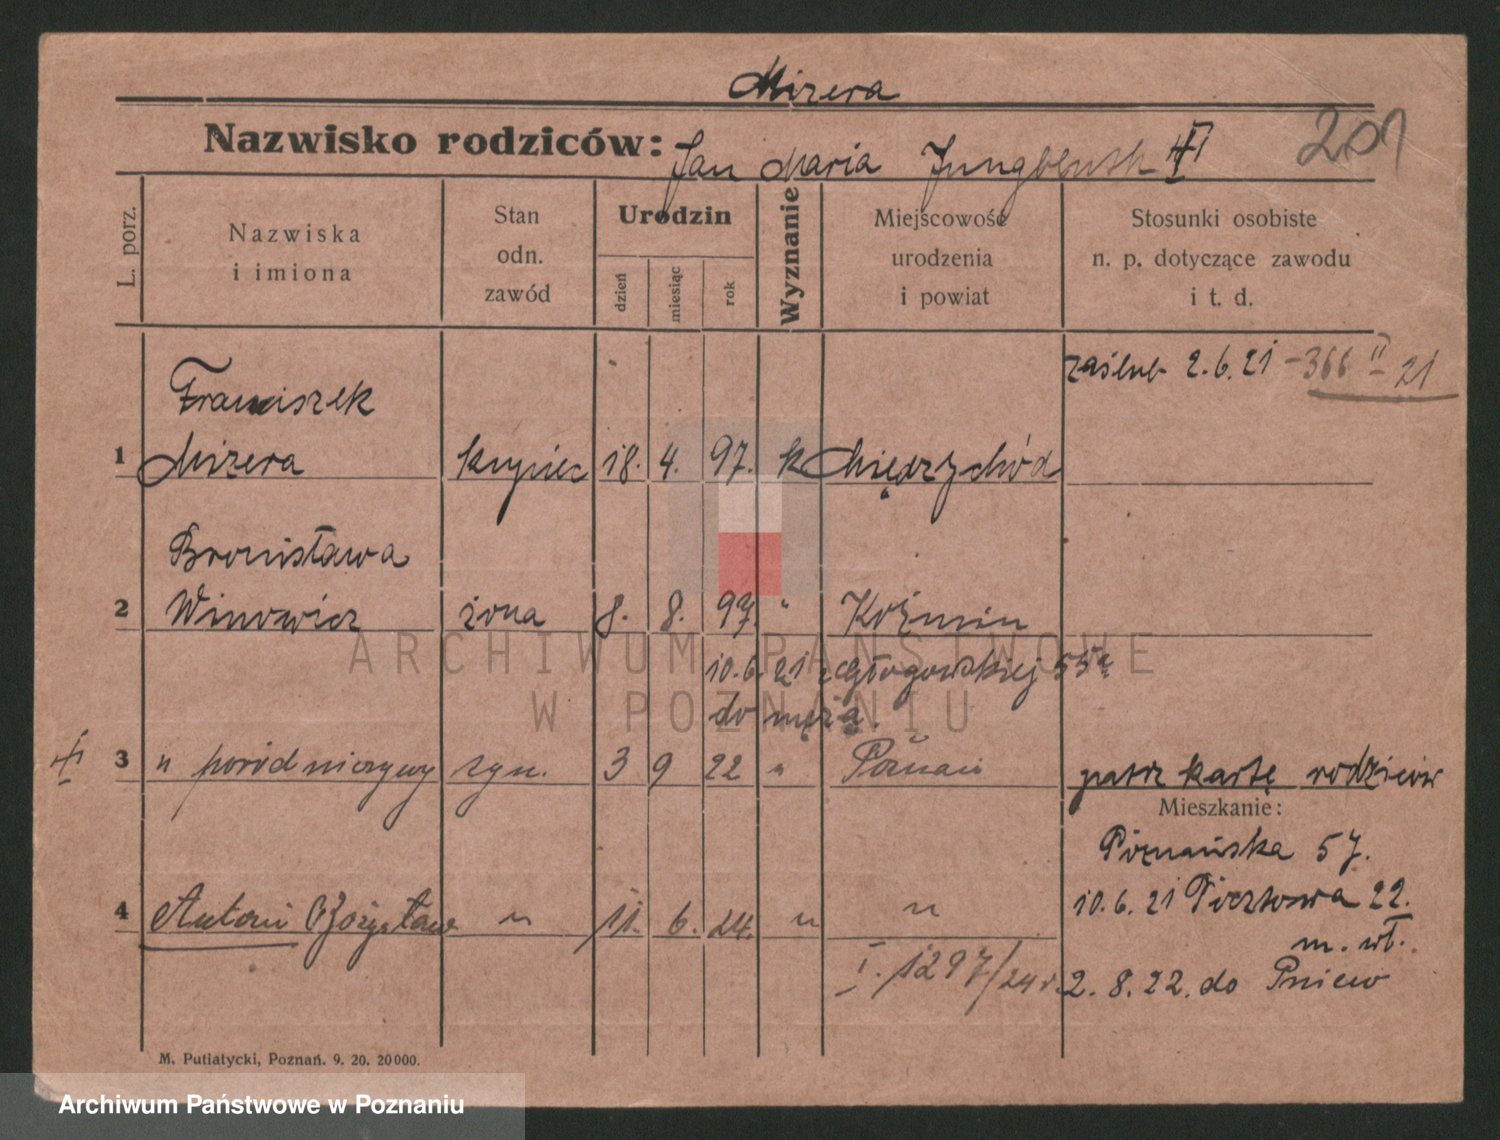 Mizera
Nazwisko rodziców: Jan Maria Jungbluth
201
L. porz.
Nazwiska i imiona
Stan odn. zawód
Urodzin
dzień miesiąc rok
Wyznanie
Miejscowość urodzenia i powiat
Stosunki osobiste n. p. dotyczące zawodu i t. d.
zaślub 2.6.21 – 366 II 21
Franciszek
1 Mizera kupiec 18. 4. 97. k Międzychód
Bronisława
2 Winowicz żona 8. 8. 97. " Koźmin
10.6.21 z Głogowskiej 55a
do męża.
3 n poródniczywy syn. 3 9 22 " Poznań patrz kartę rodziców
Mieszkanie:
Poznańska 57.
4 Antoni Bożysław " 11. 6. 24. " " 10.6.21 Pocztowa 22.
m. wł.
I. 1297/24 r. 2.8.22. do Pniew
M. Putiatycki, Poznań. 9. 20. 20000.
ARCHIWUM PAŃSTWOWE
W POZNANIU
Archiwum Państwowe w Poznaniu